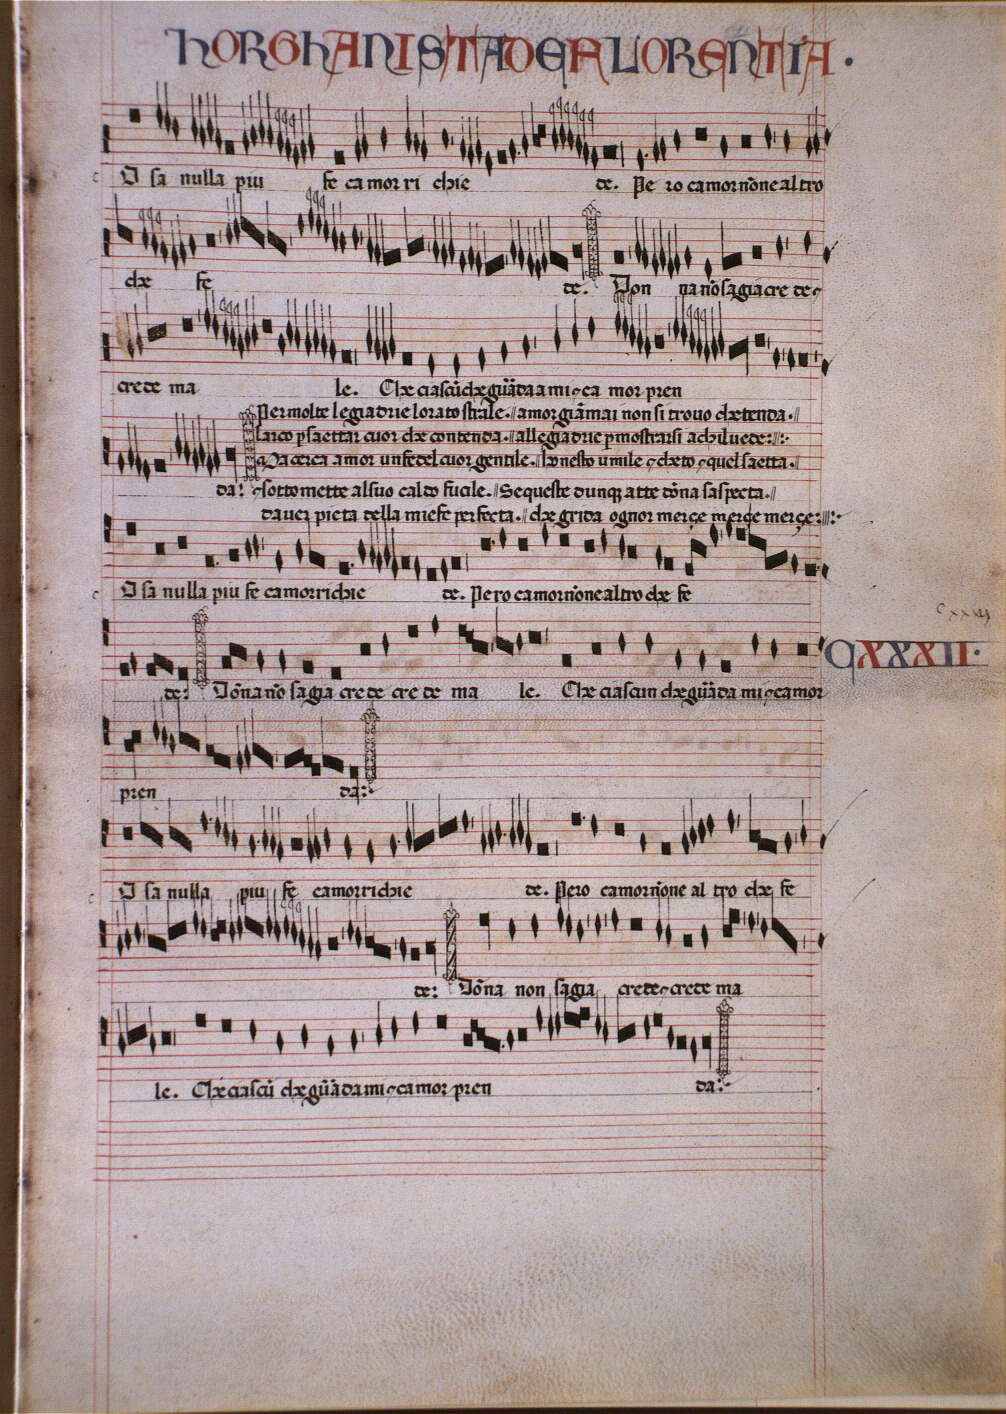 HORGHANISTA DE FLORENTIA ·
O sa nulla piu fe ca mor ri chie de. Pe ro ca mor nōne al tro
che fe de. Don na nō sa gia cre de ⁊
crede ma le. Che ciascū che guāda a mi ⁊ ca mor pren
Per molte legiadrie lorato strale. // amor giāmai non si trovo che tenda. //
larco p saettar cuor che contenda. //
Ma cerca amor un fedel cuor gentile. // honesto umile ⁊ cheto ⁊ quel saetta. //
da: ⁊ sottomette al suo caldo fucile. // Se queste dunq; a te dōna saspecta. //
daver pieta della mie fe perfecta. // che grida ognor merçe merçe merçe:
O sa nulla piu fe camorrichie de. Pero camor nōne altro che fe
CXXXII ·
de: Dōna nō sa gia cre de cre de ma le. Che ciascun che guāda mi ⁊ camor
pren da:
O sa nulla piu fe camorrichie de. Pero camor nōne al tro che fe
de: Dōna non sa gia crede ⁊ crede ma
le. Che ciascū che guāda mi ⁊ camor pren da: